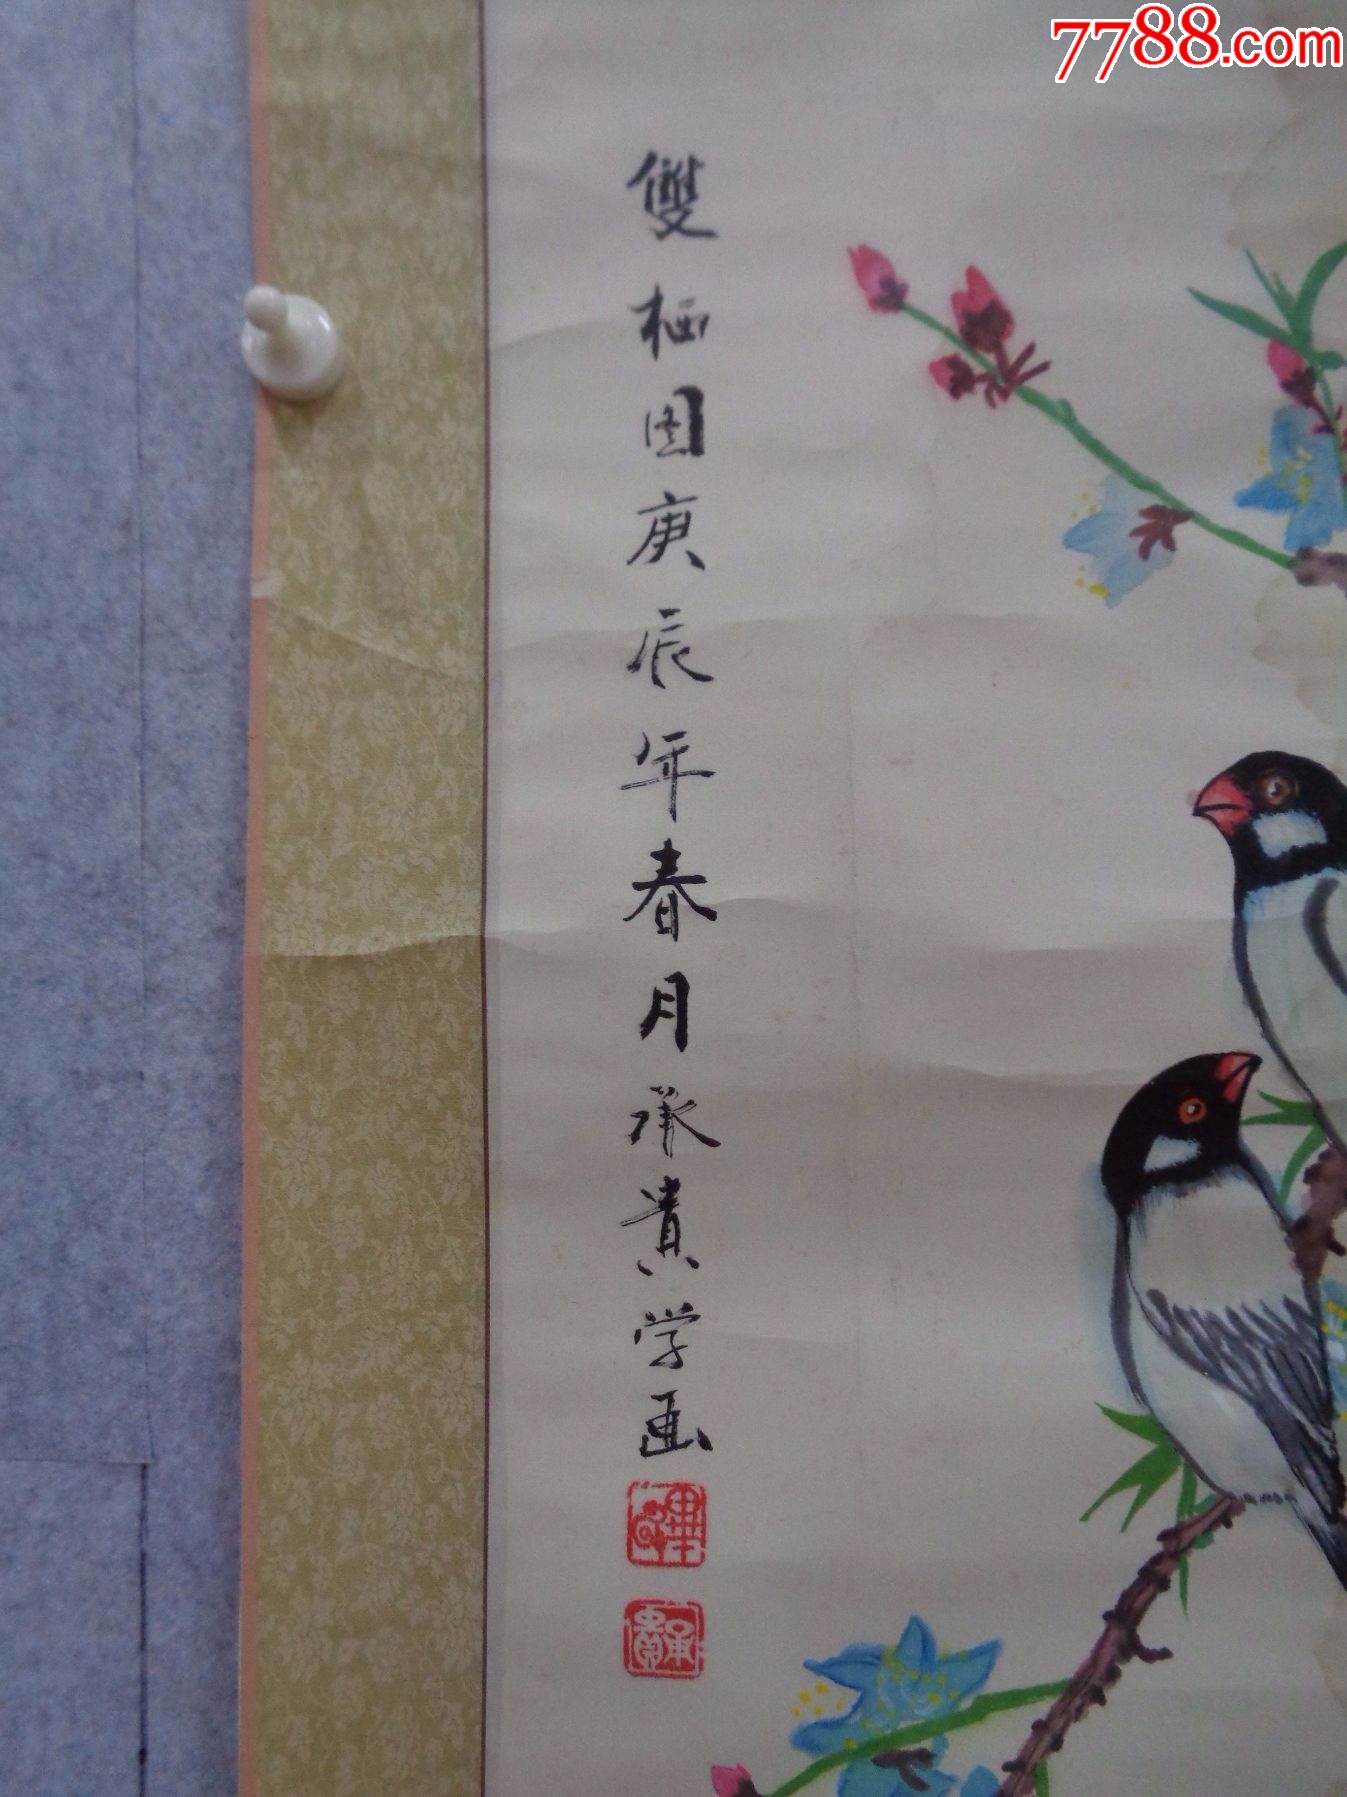 7788.com
雙栖图庚辰年春月承贵学画